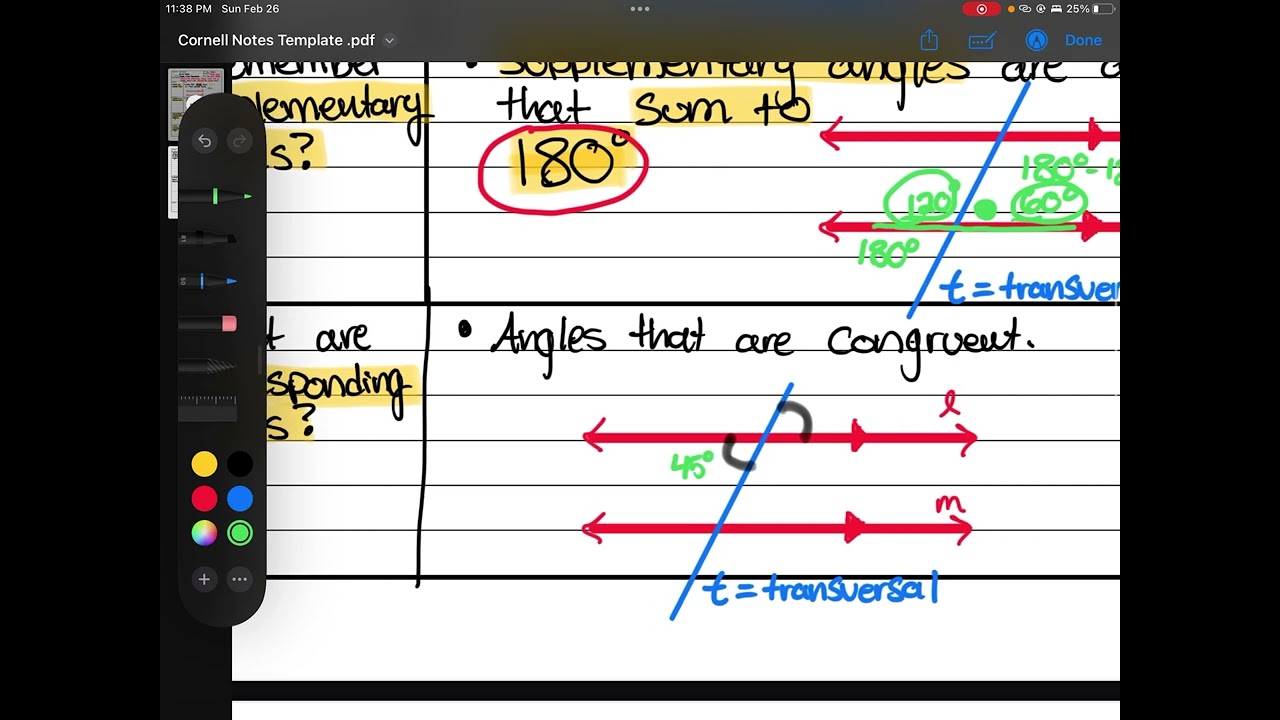 11:38 PM Sun Feb 26
25%
Cornell Notes Template .pdf
Done
member
lementary
s?
• Supplementary angles are
that sum to
180°
180°-1
120° 60°
180°
t = transver
t are
sponding
s?
• Angles that are congruent.
l
45°
m
t = transversal